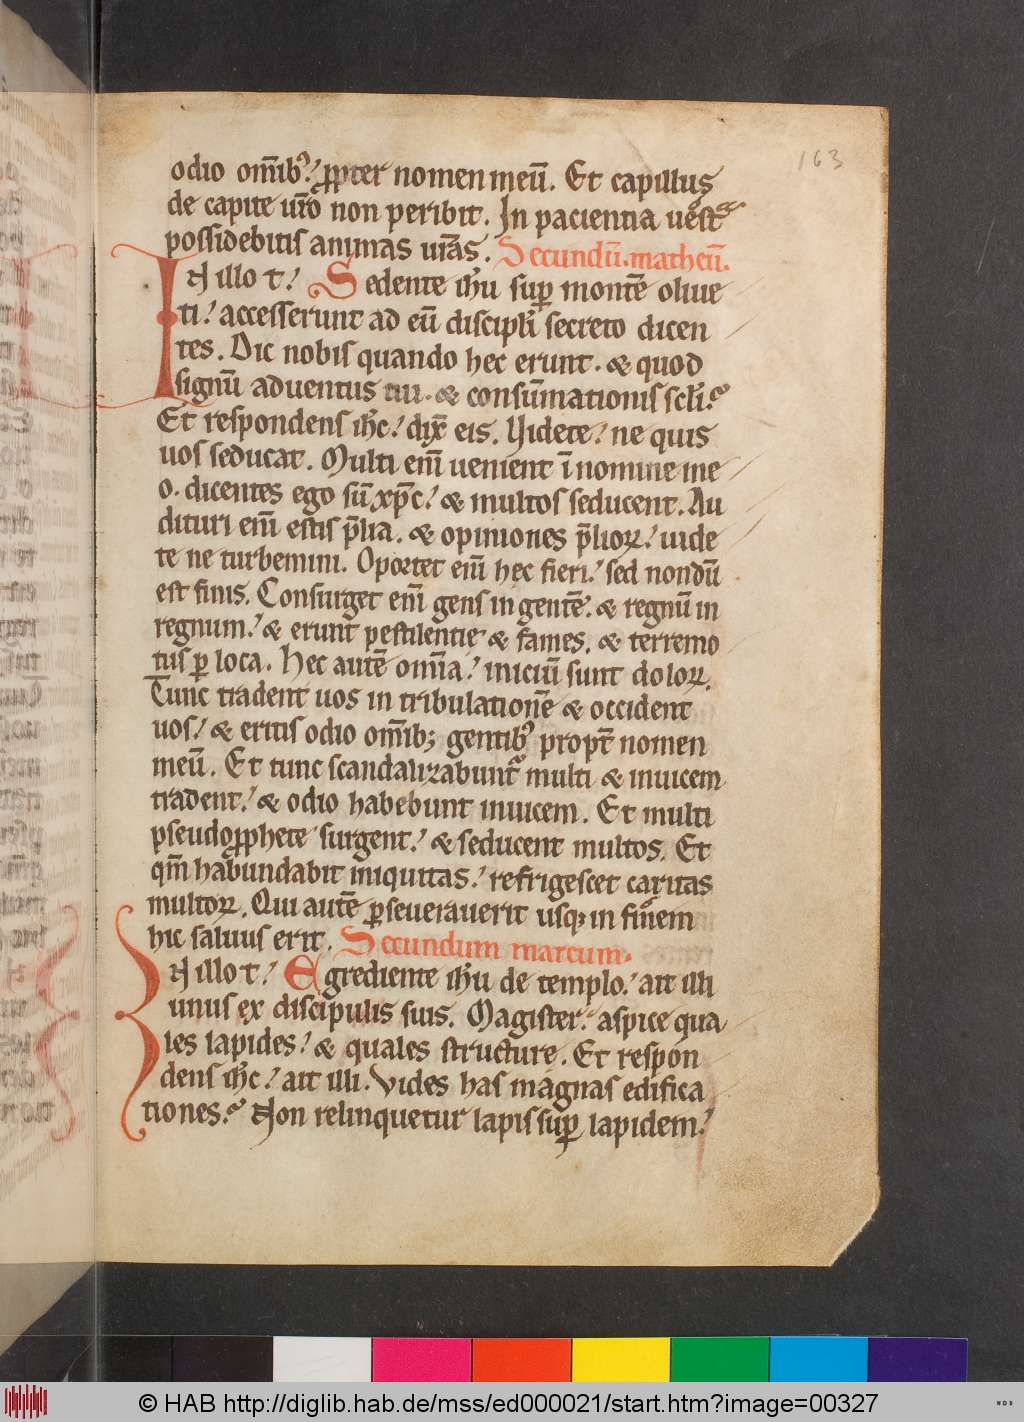 163
odio om̄ibꝰ ꝓpter nomen meū. Et capillus
de capite ur̄o non peribit. In pacientia uest͛ᵃ
possidebitis animas ur̄as. Secundū. matheū.
IN illo t̄ Sedente ih̄u suꝑ montē oliue
ti accesserunt ad eū discipl̄i secreto dicen
tes. Dic nobis quando hec erunt. & quod
signū aduentus tui. & consūmationis scl̄i.
Et respondens ih̄c dix̄ eis. Videte ne quis
uos seducat. Multi em̄ uenient ī nomine me
o. dicentes ego sū xp̄c & multos seducent. Au
dituri em̄ estis p̄lia. & opiniones p̄lioꝝ uide
te ne turbemini. Oportet em̄ hec fieri sed nondū
est finis. Consurget em̄ gens in gentē & regnū in
regnum & erunt pestilentie & fames. & terremo
tus ꝑ loca. Hec autē om̄ia iniciū sunt doloꝝ.
Tunc tradent uos in tribulationē & occident
uos & eritis odio om̄ib; gentibꝰ propt̄ nomen
meū. Et tunc scandalizabunt᷑ multi & inuicem
tradent & odio habebunt inuicem. Et multi
pseudoꝓphete surgent & seducent multos. Et
qm̄ habundabit iniquitas refrigescet caritas
multoꝝ. Qui autē ꝑseuerauerit usqꝫ in finem
hic saluus erit. Secundum marcum.
IN illo t̄ Egrediente ih̄u de templo ait illi
unus ex discipulis suis. Magister aspice qua
les lapides & quales structure. Et respon
dens ih̄c ait illi. Vides has magnas edifica
tiones. Non relinquetur lapis suꝑ lapidem
© HAB http://diglib.hab.de/mss/ed000021/start.htm?image=00327